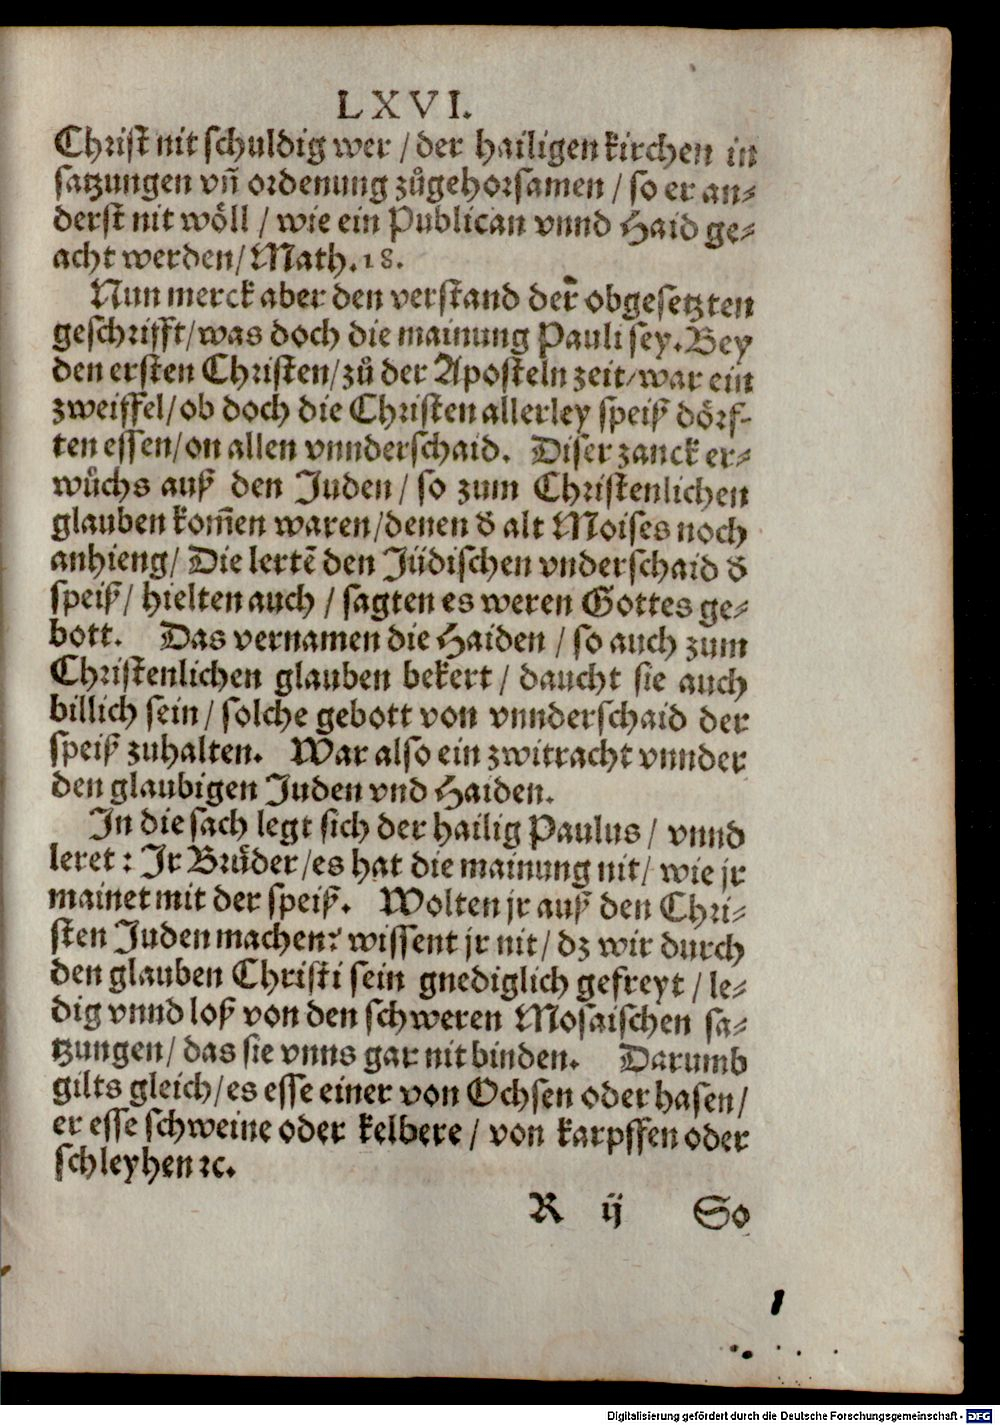 LXVI.
Christ nit schuldig wer / der hailigen kirchen in
satzungen vn̄ ordenung zůgehorsamen / so er an⸗
derst nit wöll / wie ein Publican vnnd Haid ge⸗
acht werden / Math. 18.
Nun merck aber den verstand der̃ obgesetzten
geschrifft / was doch die mainung Pauli sey. Bey
den ersten Christen / zů der Aposteln zeit / war ein
zweiffel / ob doch die Christen allerley speiß dörf⸗
ten essen / on allen vnnderschaid. Diser zanck er⸗
wůchs auß den Juden / so zum Christenlichen
glauben kom̄en waren / denen d̕ alt Moises noch
anhieng / Die lertē den Jüdischen vnderschaid d̕
speiß / hielten auch / sagten es weren Gottes ge⸗
bott. Das vernamen die Haiden / so auch zum
Christenlichen glauben bekert / daucht sie auch
billich sein / solche gebott von vnnderschaid der
speiß zuhalten. War also ein zwitracht vnnder
den glaubigen Juden vnd Haiden.
In die sach legt sich der hailig Paulus / vnnd
leret : Ir Brůder / es hat die mainung nit / wie jr
mainet mit der speiß. Wolten jr auß den Chri⸗
sten Juden machen? wissent jr nit / dz wir durch
den glauben Christi sein gnediglich gefreyt / le⸗
dig vnnd loß von den schweren Mosaischen sa⸗
tzungen / das sie vnns gar nit binden. Darumb
gilts gleich / es esse einer von Ochsen oder hasen /
er esse schweine oder kelbere / von karpffen oder
schleyhen ꝛc.
R ij So
Digitalisierung gefördert durch die Deutsche Forschungsgemeinschaft - DFG